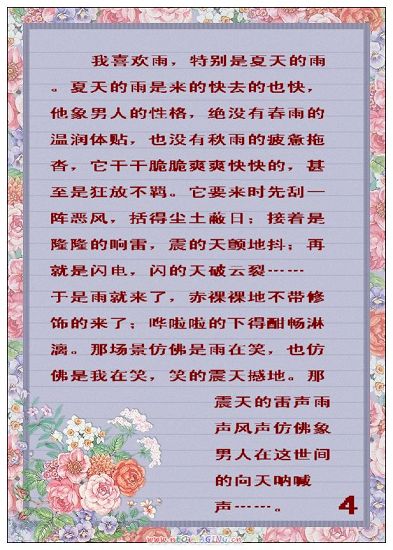 我喜欢雨，特别是夏天的雨
。夏天的雨是来的快去的也快，
他象男人的性格，绝没有春雨的
温润体贴，也没有秋雨的疲惫拖
沓，它干干脆脆爽爽快快的，甚
至是狂放不羁。它要来时先刮一
阵恶风，括得尘土蔽日；接着是
隆隆的响雷，震的天颤地抖；再
就是闪电，闪的天破云裂……
于是雨就来了，赤裸裸地不带修
饰的来了；哗啦啦的下得酣畅淋
漓。那场景仿佛是雨在笑，也仿
佛是我在笑，笑的震天撼地。那
震天的雷声雨
声风声仿佛象
男人在这世间
的向天呐喊
声……。
4